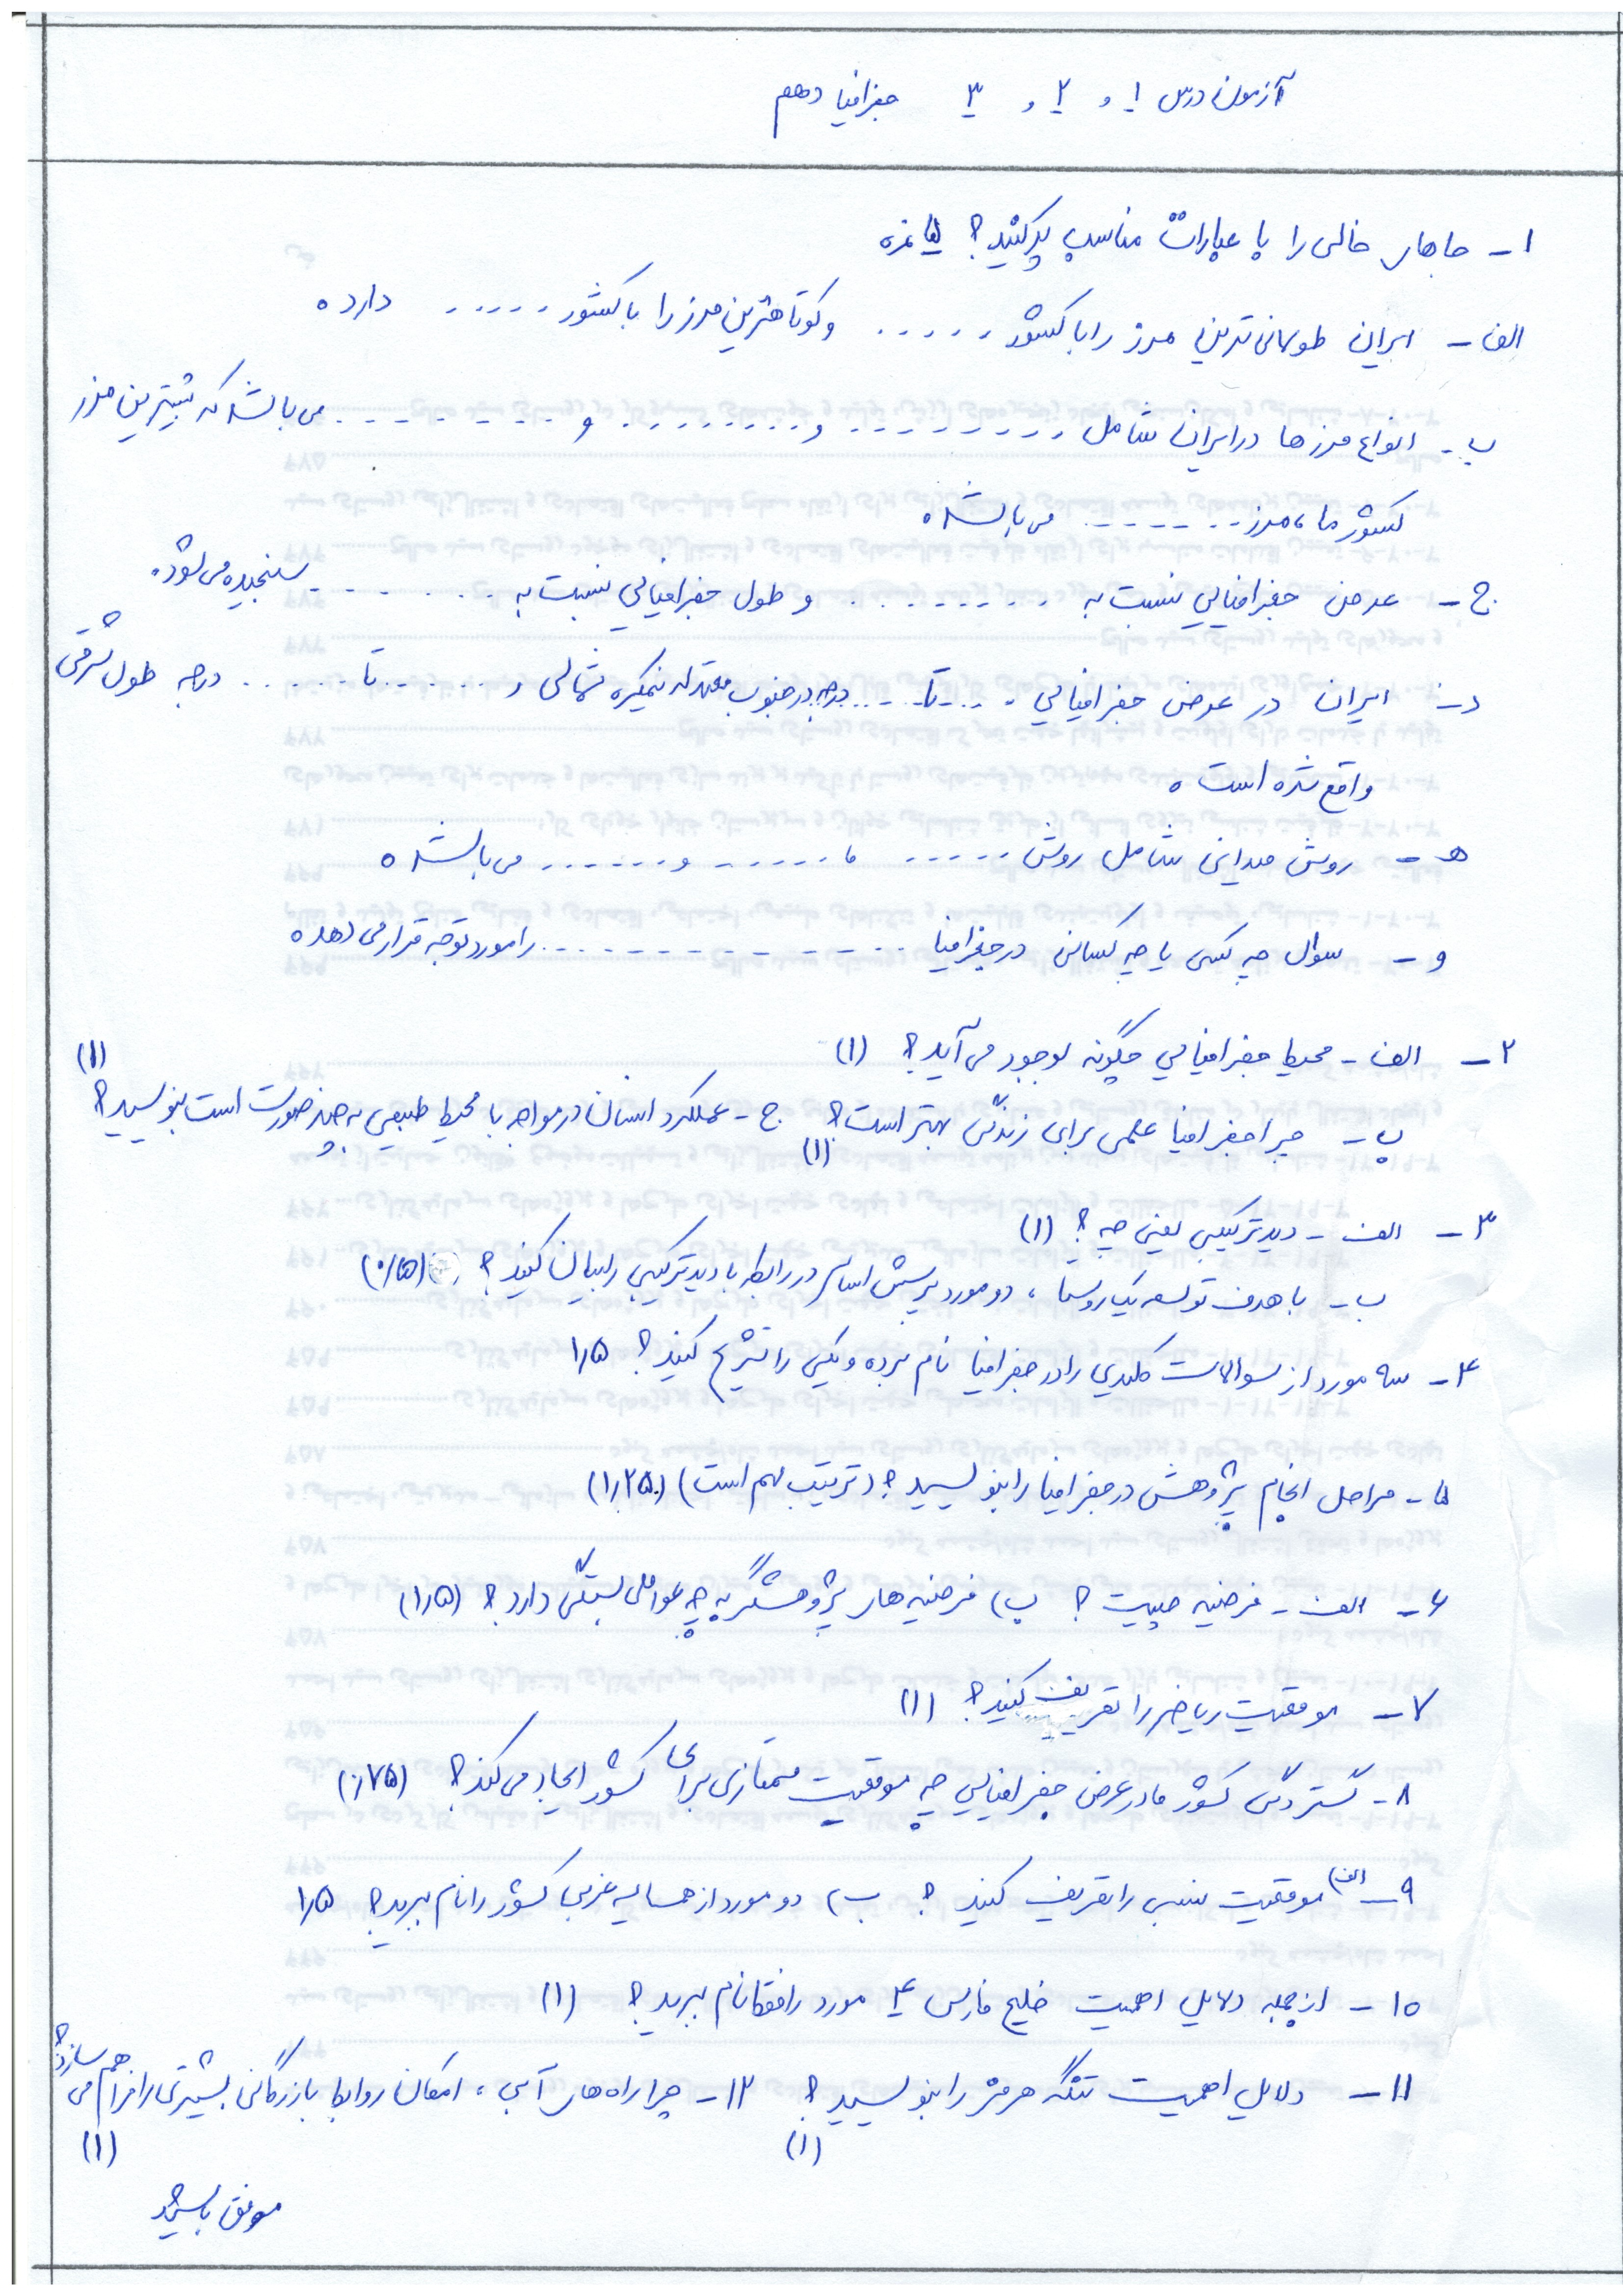 آزمون درس ۱ و ۲ و ۳ جغرافیا دهم
۱- جاهای خالی را با عبارات مناسب پرکنید؟ ۵ نمره
الف - ایران طولانی ترین مرز را با کشور ...... و کوتاهترین مرز را با کشور ...... دارد.
ب- انواع مرزها در ایران شامل .......... و .......... و .......... می باشد که بیشترین مرز
کشور ما، مرز ........ می باشد.
ج- عرض جغرافیایی نسبت به .......... و طول جغرافیایی نسبت به .......... سنجیده می شود.
د- ایران در عرض جغرافیایی ..... تا ..... درجه در جنوب معتدله نیمکره شمالی و ...... تا ...... درجه طول شرقی
واقع شده است.
هـ - روش میدانی شامل روش ...... ، ...... و ....... می باشد.
و - سوال چه کسی یا چه کسانی در جغرافیا ................ را مورد توجه قرار می دهد.
۲- الف - محیط جغرافیایی چگونه بوجود می آید؟ (۱)
ب- چرا جغرافیا علمی برای زندگی بهتر است؟ (۱) ج- عملکرد انسان در مواجه با محیط طبیعی به چند صورت است بنویسید؟ (۱)
۳- الف - دید ترکیبی یعنی چه؟ (۱)
ب- با هدف توسعه یک روستا، دو مورد پرسش اساسی در رابطه با دید ترکیبی را بیان کنید؟ (۰/۵)
۴- سه مورد از سوالات کلیدی را در جغرافیا نام برده و یکی را تشریح کنید؟ ۱/۵
۵- مراحل انجام پژوهش در جغرافیا را بنویسید؟ (ترتیب مهم است) (۱/۲۵)
۶- الف - فرضیه چیست؟ ب) فرضیه های پژوهشگر به چه عواملی بستگی دارد؟ (۱/۵)
۷- موقعیت ریاضی را تعریف کنید؟ (۱)
۸- گستردگی کشور ما در عرض جغرافیایی چه موقعیت ممتازی برای کشور ایجاد می کند؟ (۰/۷۵)
۹- الف) موقعیت نسبی را تعریف کنید؟ ب) دو مورد از همسایه غربی کشور را نام ببرید؟ ۱/۵
۱۰- از جمله دلایل اهمیت خلیج فارس ۴ مورد را فقط نام ببرید؟ (۱)
۱۱- دلایل اهمیت تنگه هرمز را بنویسید؟ (۱) ۱۲- چرا راه های آبی، امکان روابط بازرگانی بیشتری را فراهم می سازد؟ (۱)
موفق باشید